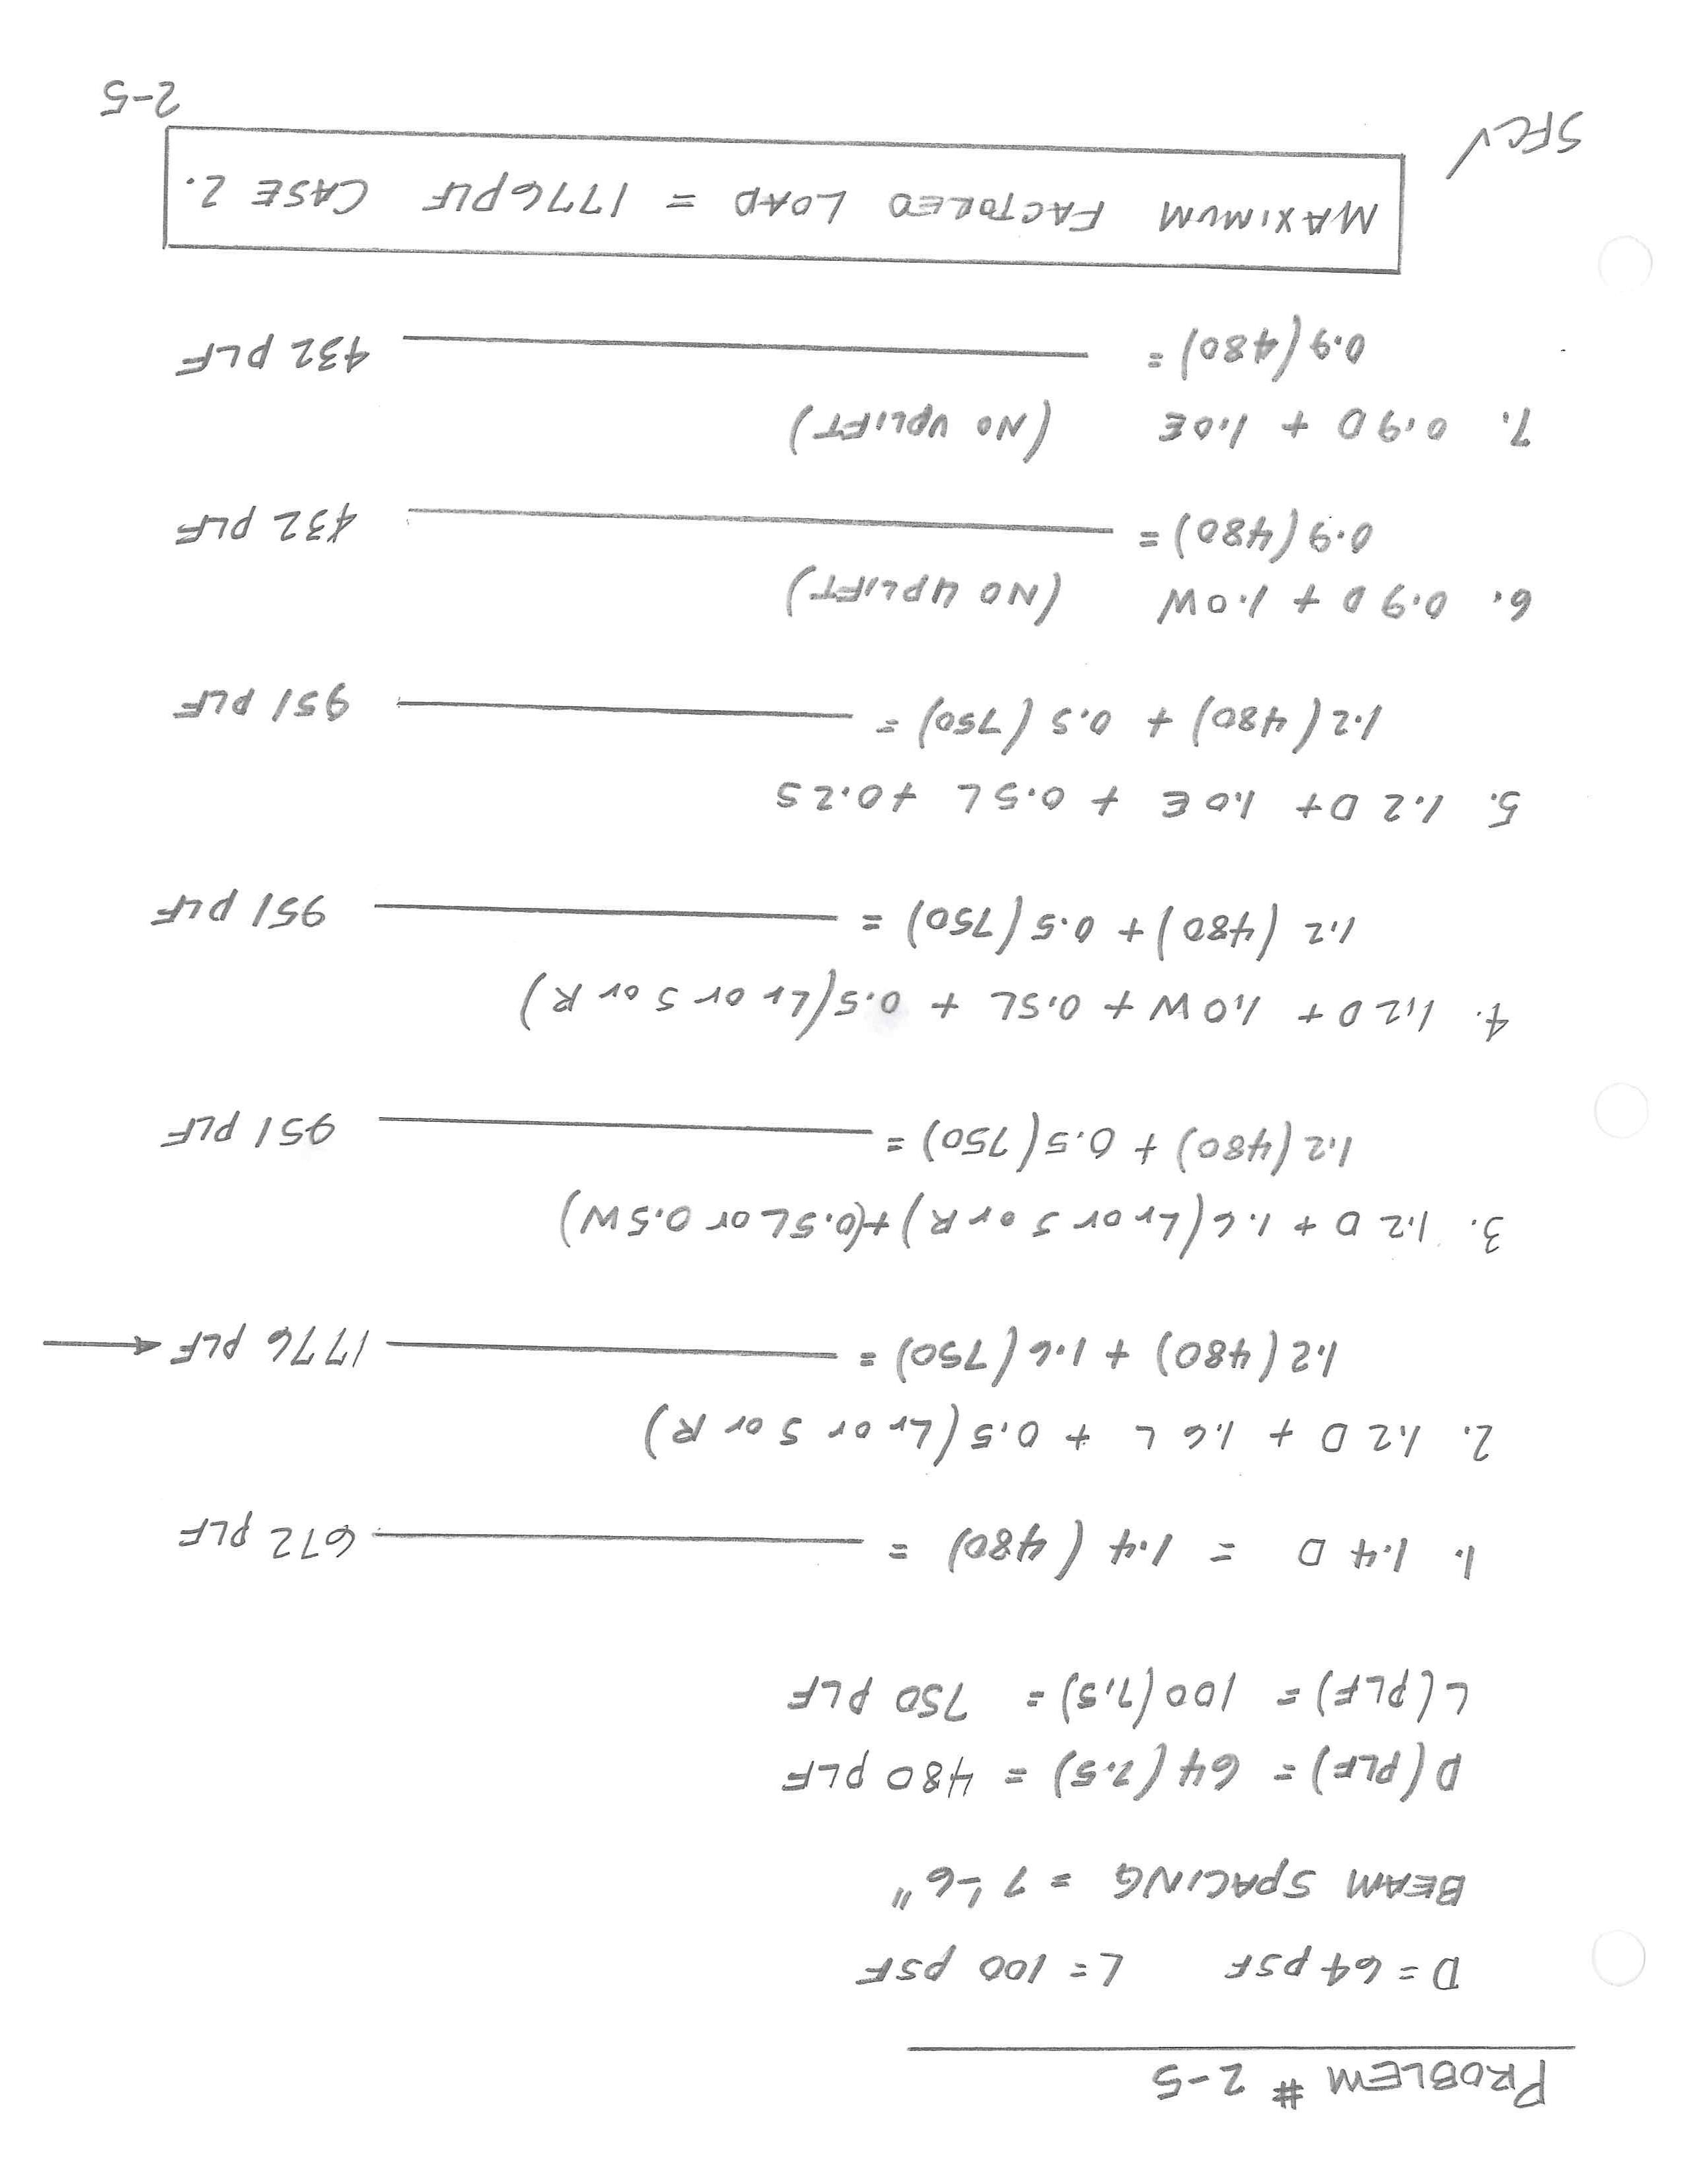 PROBLEM # 2-5
D = 64 PSF L = 100 PSF
BEAM SPACING = 7'-6"
D(PLF) = 64(7.5) = 480 PLF
L(PLF) = 100(7.5) = 750 PLF
1. 1.4 D = 1.4 (480) = 672 PLF
2. 1.2 D + 1.6 L + 0.5 (Lr or S or R)
1.2 (480) + 1.6 (750) = 1776 PLF ←
3. 1.2 D + 1.6 (Lr or S or R) + (0.5L or 0.5W)
1.2 (480) + 0.5 (750) = 951 PLF
4. 1.2 D + 1.0W + 0.5L + 0.5(Lr or S or R)
1.2 (480) + 0.5 (750) = 951 PLF
5. 1.2 D + 1.0E + 0.5L + 0.2S
1.2 (480) + 0.5 (750) = 951 PLF
6. 0.9 D + 1.0W (NO UPLIFT)
0.9 (480) = 432 PLF
7. 0.9D + 1.0E (NO UPLIFT)
0.9 (480) = 432 PLF
MAXIMUM FACTORED LOAD = 1776 PLF CASE 2.
SFC✓ 2-5